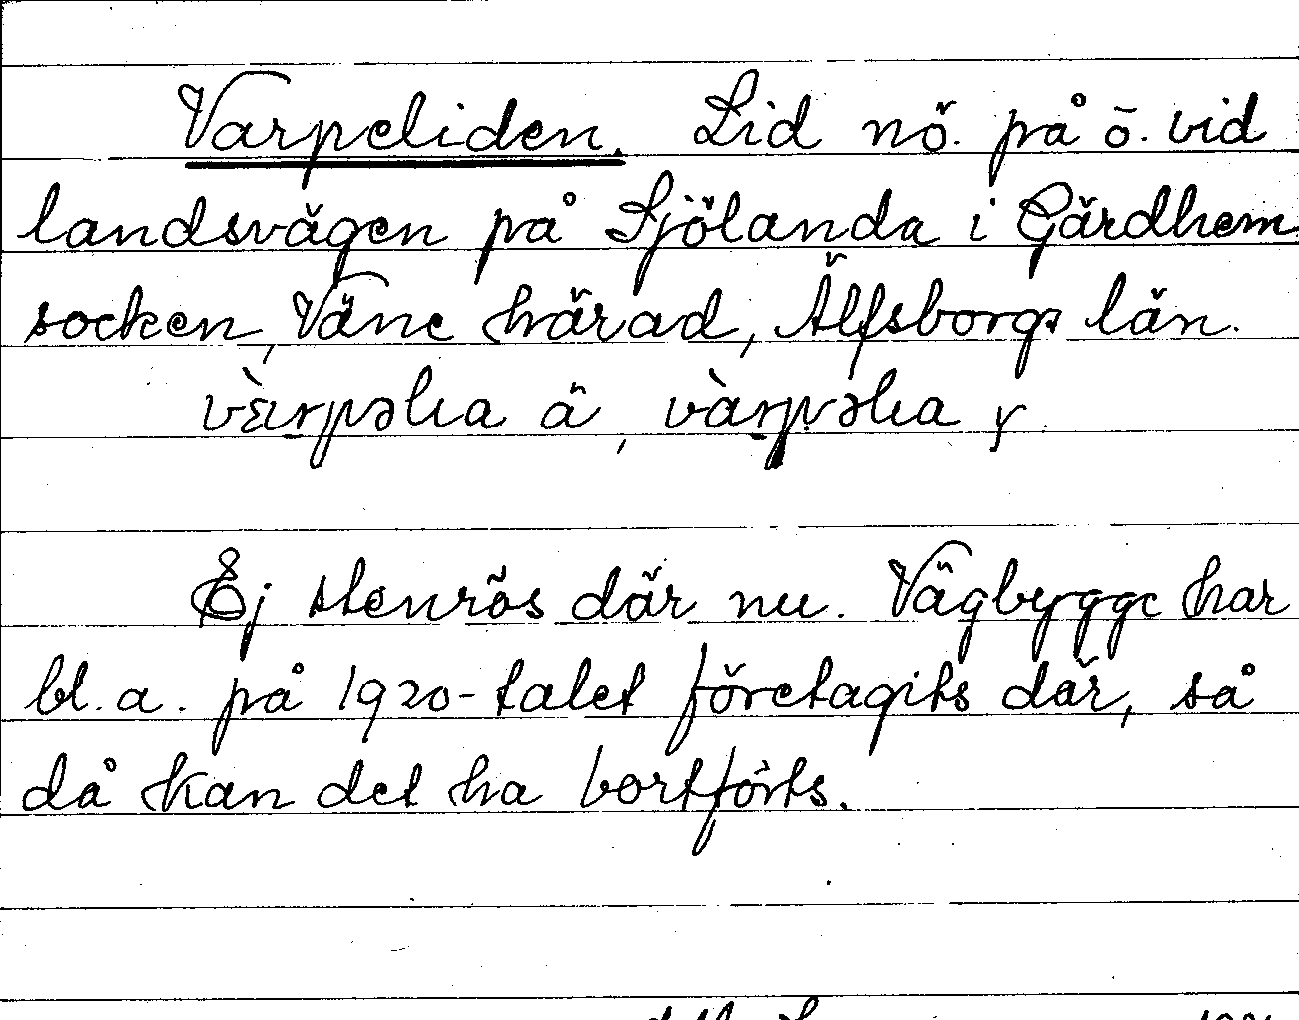 Varpeliden. Lid nö. på ö. vid
landsvägen på Sjölanda i Gärdhem
socken, Väne härad, Älfsborgs län.
ä, y
Ej stenrös där nu. Vägbygge har
bl. a. på 1920-talet företagits där, så
då kan det ha bortförts.